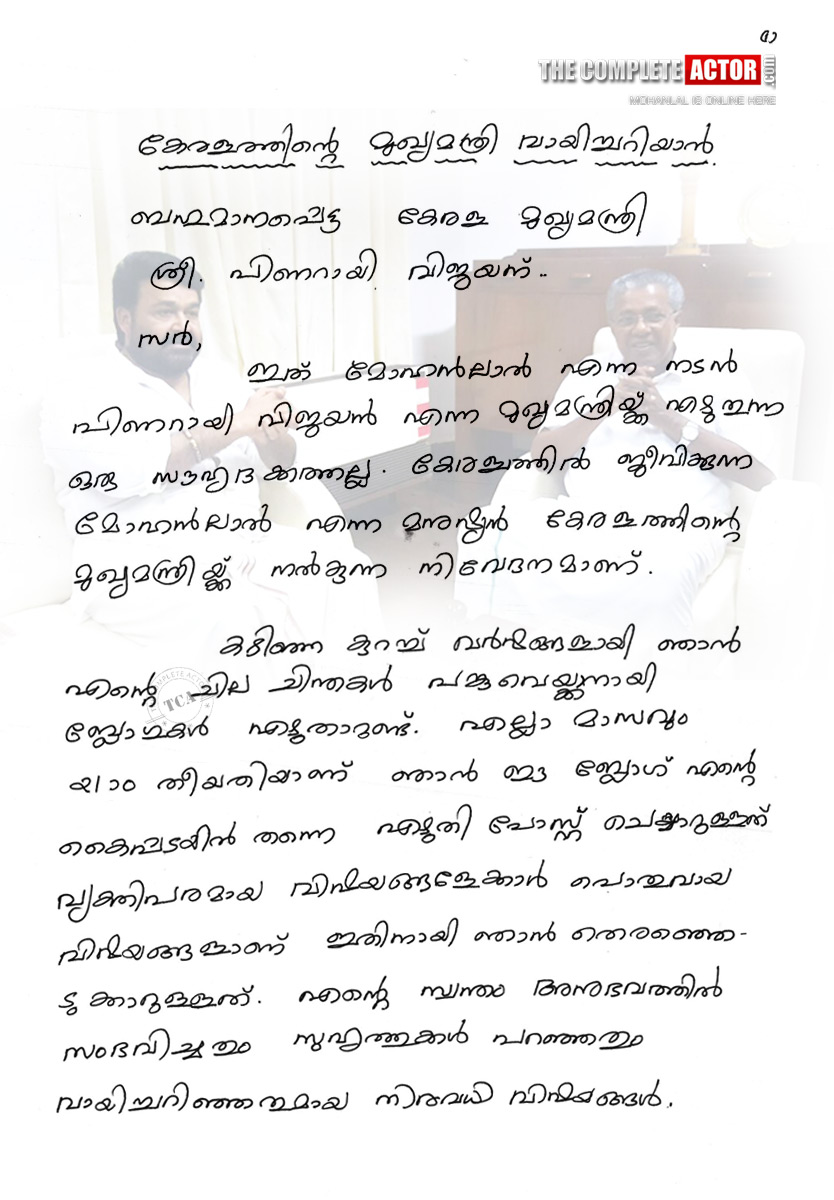 THE COMPLETE ACTOR .com
MOHANLAL IS ONLINE HERE
കേരളത്തിന്റെ മുഖ്യമന്ത്രി വായിച്ചറിയാൻ.
ബഹുമാനപ്പെട്ട കേരള മുഖ്യമന്ത്രി
ശ്രീ. പിണറായി വിജയന്..
സർ,
ഇത് മോഹൻലാൽ എന്ന നടൻ
പിണറായി വിജയൻ എന്ന മുഖ്യമന്ത്രിയ്ക്ക് എഴുതുന്ന
ഒരു സൗഹൃദകത്തല്ല. കേരളത്തിൽ ജീവിക്കുന്ന
മോഹൻലാൽ എന്ന മനുഷ്യൻ കേരളത്തിന്റെ
മുഖ്യമന്ത്രിയ്ക്ക് നൽകുന്ന നിവേദനമാണ്.
കഴിഞ്ഞ കുറച്ച് വർഷങ്ങളായി ഞാൻ
എന്റെ ചില ചിന്തകൾ പങ്കുവെയ്ക്കുന്നതായി
ബ്ലോഗുകൾ എഴുതാറുണ്ട്. എല്ലാ മാസവും
21ാം തീയതിയാണ് ഞാൻ ഈ ബ്ലോഗ് എന്റെ
കൈപ്പടയിൽ തന്നെ എഴുതി പോസ്റ്റ് ചെയ്യാറുള്ളത്
വ്യക്തിപരമായ വിഷയങ്ങളേക്കാൾ പൊതുവായ
വിഷയങ്ങളാണ് ഇതിനായി ഞാൻ തെരഞ്ഞെ-
ടുക്കാറുള്ളത്. എന്റെ സ്വന്തം അനുഭവത്തിൽ
സംഭവിച്ചതും സുഹൃത്തുക്കൾ പറഞ്ഞതും
വായിച്ചറിഞ്ഞതുമായ നിരവധി വിഷയങ്ങൾ.